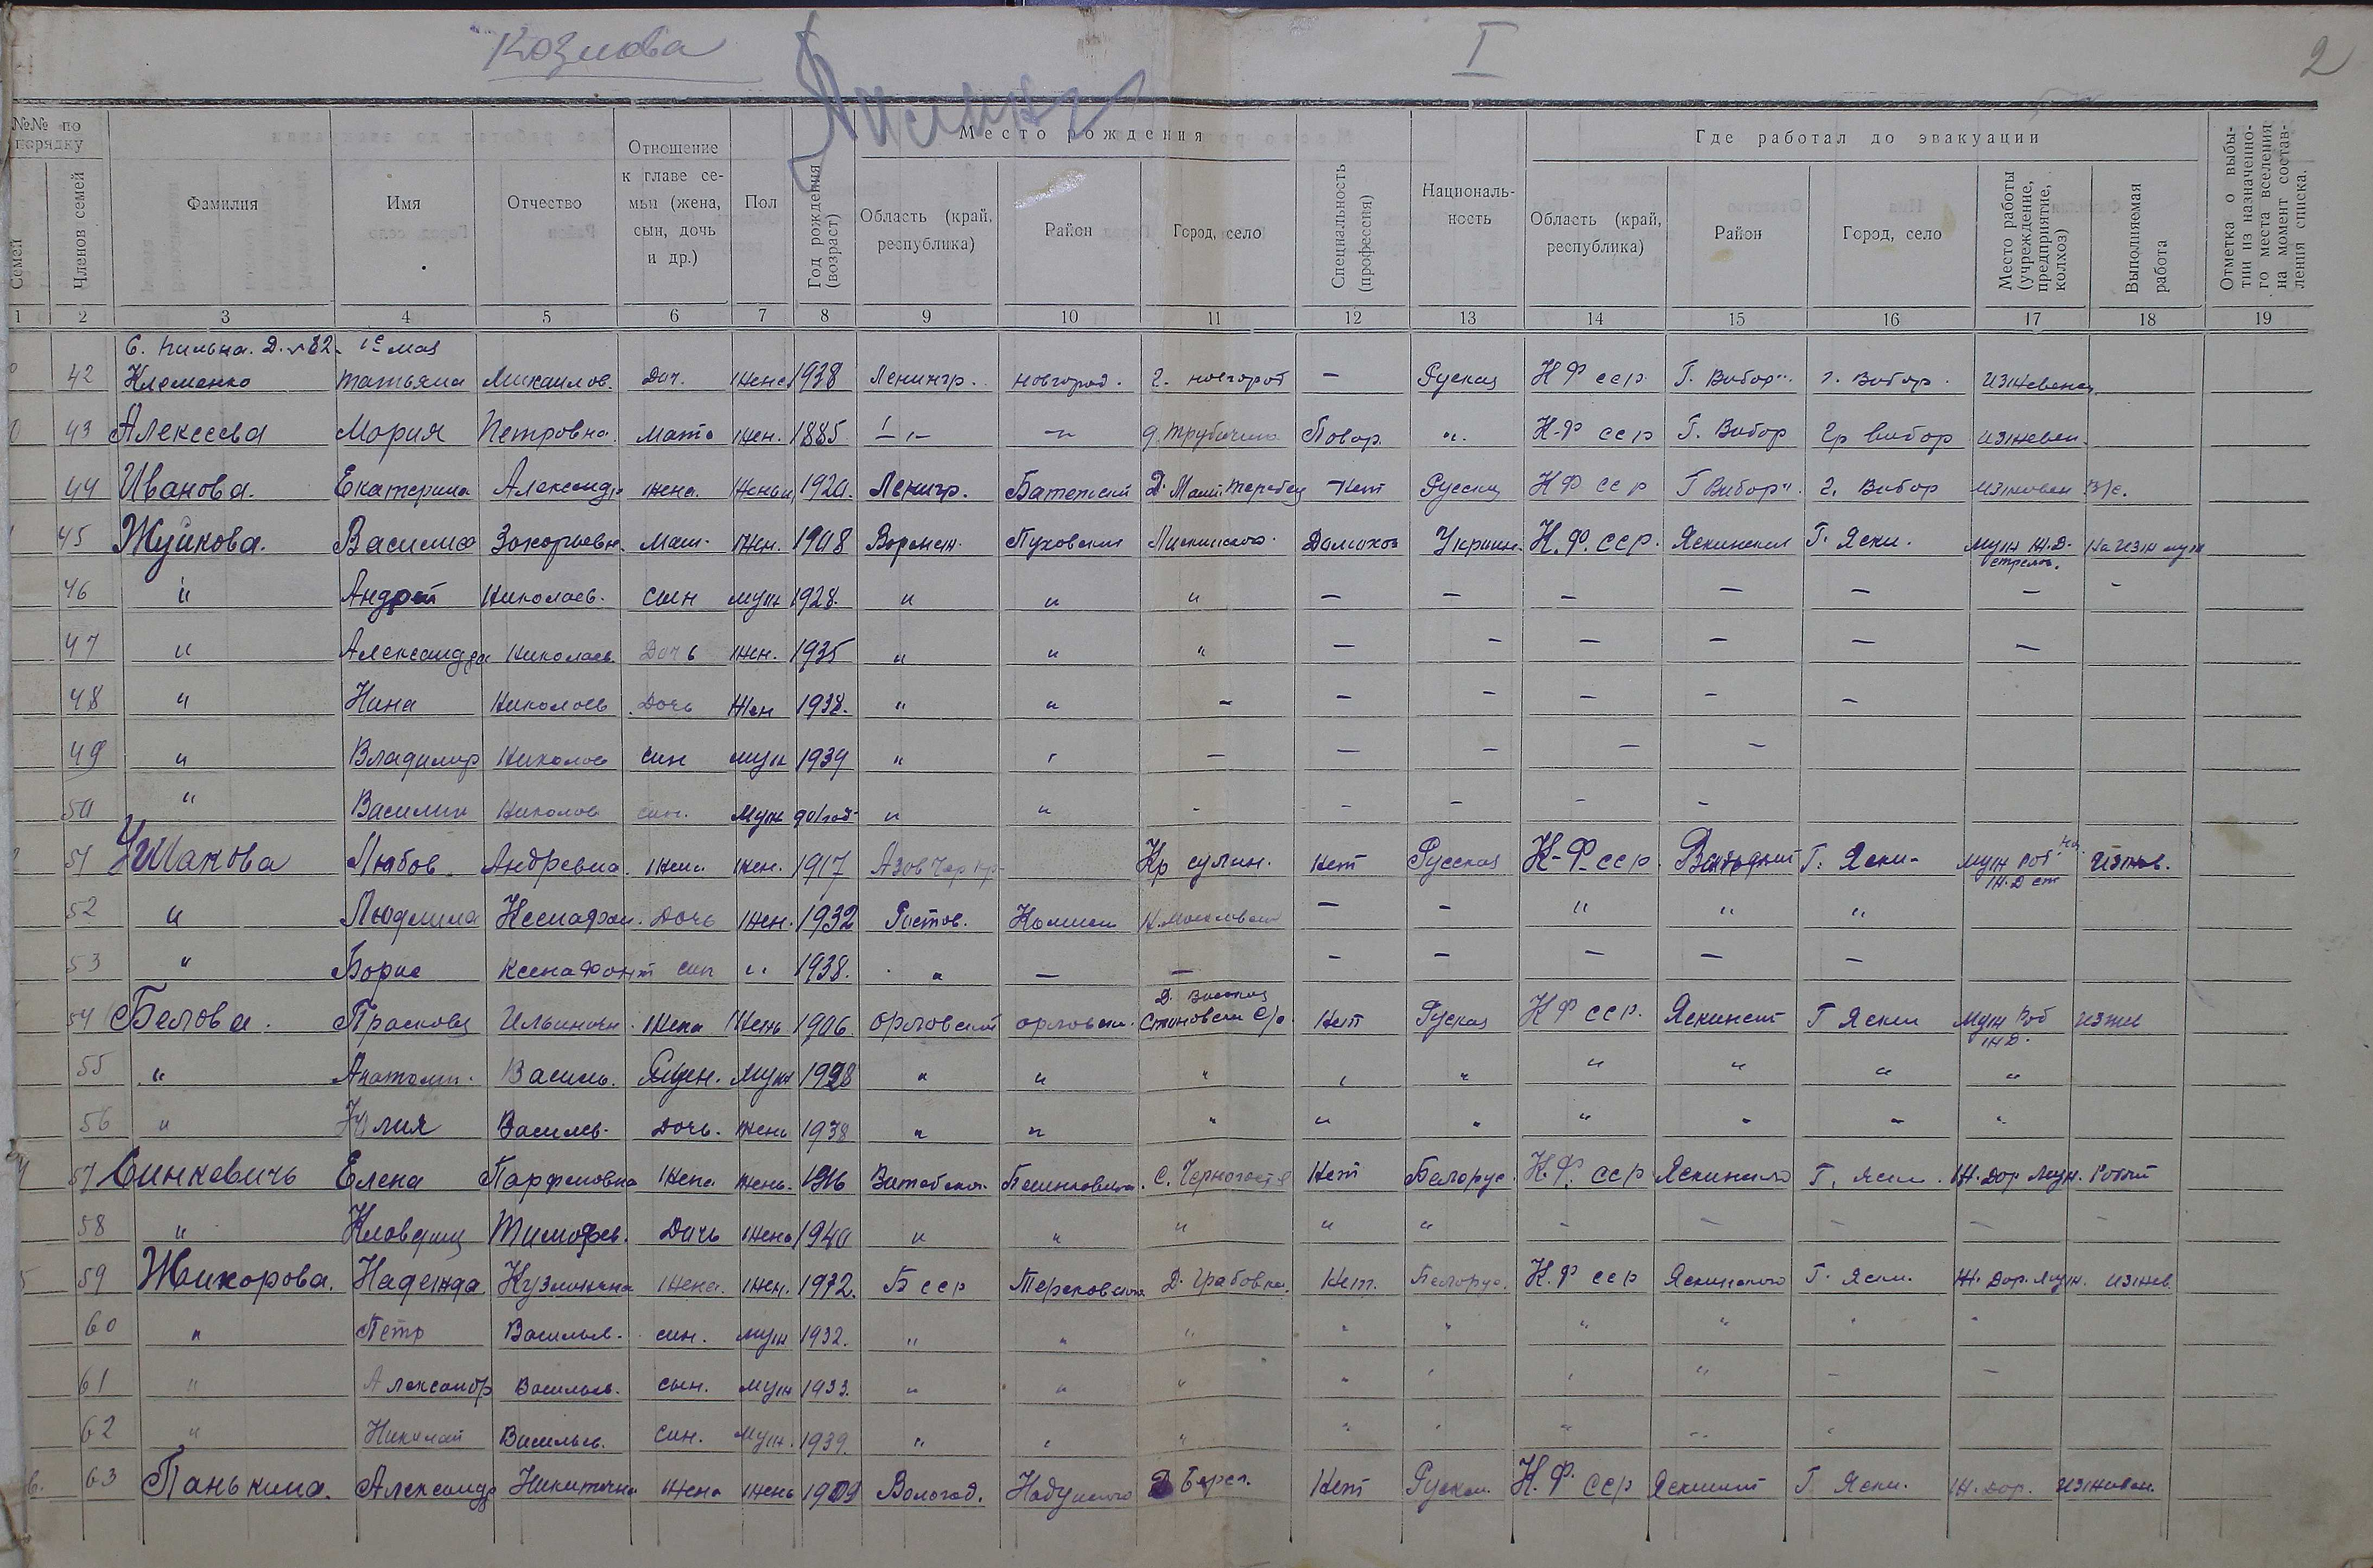 Козлова I 2
№№ по порядку Место рождения Где работал до эвакуации
Семей Членов семей Фамилия Имя Отчество Отношение к главе семьи (жена, сын, дочь и др.) Пол Год рождения (возраст) Область (край, республика) Район Город, село Специальность (профессия) Националь-ность Область (край, республика) Район Город, село Место работы (учреждение, предприятие, колхоз) Выполняемая работа Отметка о выбы-тии из назначенно-го места вселения на момент состав-ления списка.
1 2 3 4 5 6 7 8 9 10 11 12 13 14 15 16 17 18 19
С. Пильна. Д. 82. 1е мая
42 Клеменко Татьяна Михаилов. Доч. Женс 1938 Ленингр. новгород. г. новгород — Руская К Ф сср Г. Вибор. г. Вибор. Изжевенец
43 Алексеева Мария Петровна. мать жен. 1885 -"- -"- Повар " К-Ф сср Г. Вибор Гр Вибор изжевен.
44 Иванова. Екатерина Александр жена. Женьи 1920. Ленигр. Батетский Нет Русская К Ф сср Г Вибор. г. Вибор изживен
45 Жуйкова. Василиса Захорьевн. Мат. Жен. 1908 Воронеж. Пуховский Домохоз Украин. К. Ф. ССР. Яскинский Г. Яски. муж Ж.Д.
46 " Андрей Николаев. сын муж 1928. " " " — — — — — — -
47 " Александра Николаев. Дочь жен. 1935 " " " — — — — — —
48 " Нина Николоев Дочь Жен 1938. " " - — — — — —
49 " Владимир Николов син муж 1939 " " — — — — —
50 " Василии Николов син. Муж " " - - — - -
51 Ушакова Любов Андревна. жена жен. 1917 Азов Чер кр Кр сулин. нет Русская К-Ф сср. Г. Яски- муж роб на Ж.Д ст изжев.
52 " Людмила Ксенафон. Дочь жен. 1932 Ростов. — - " " "
53 " Борис Ксенафонт син " 1938. " — — — — — — —
54 Белова. Прасковя Ильинич. жена жень 1906 орловский орловски. Д. Становски С/с. Нет Руская К Ф сср. Яскинский Г Яски Муж Роб Ж.Д. изжев
55 " Анатоли. Василь. Сын. Муж 1928 " " " " " " " " "
56 " Юлия Василев. Дочь. жень 1938 " " " " " " " " "
57 Синкевичь Елена Парфеновна Жена жень. 1916 Витебская. С. Черногостье Нет Белорус. К. Ф. сср Яскинского Г. яски. Ж. Дор муж.
58 " Клавдия Тимофев. Дочь жена 1940 " " " " " — — — — —
59 Жихорова. Надежда Кузминична жена. жен. 1912. Б сср Д. Грабовка. Нет. Белорус. К. Ф сср Яскинского Г. Яски. Ж. Дор. муж. изжев.
60 " Петр Васильев. син. муж 1932. " " " " " " " " "
61 " Александр Васильев. сын. муж 1933. " " " " " " " — —
62 " Николай Васильев. син. муж. 1939. " " " " " " " "
63 Панькина. Александр Никитична жена жень 1909 Вологод. Нет Руская. К. Ф. ССР Яскинский Г. Яски. Ж. дор. изживен.